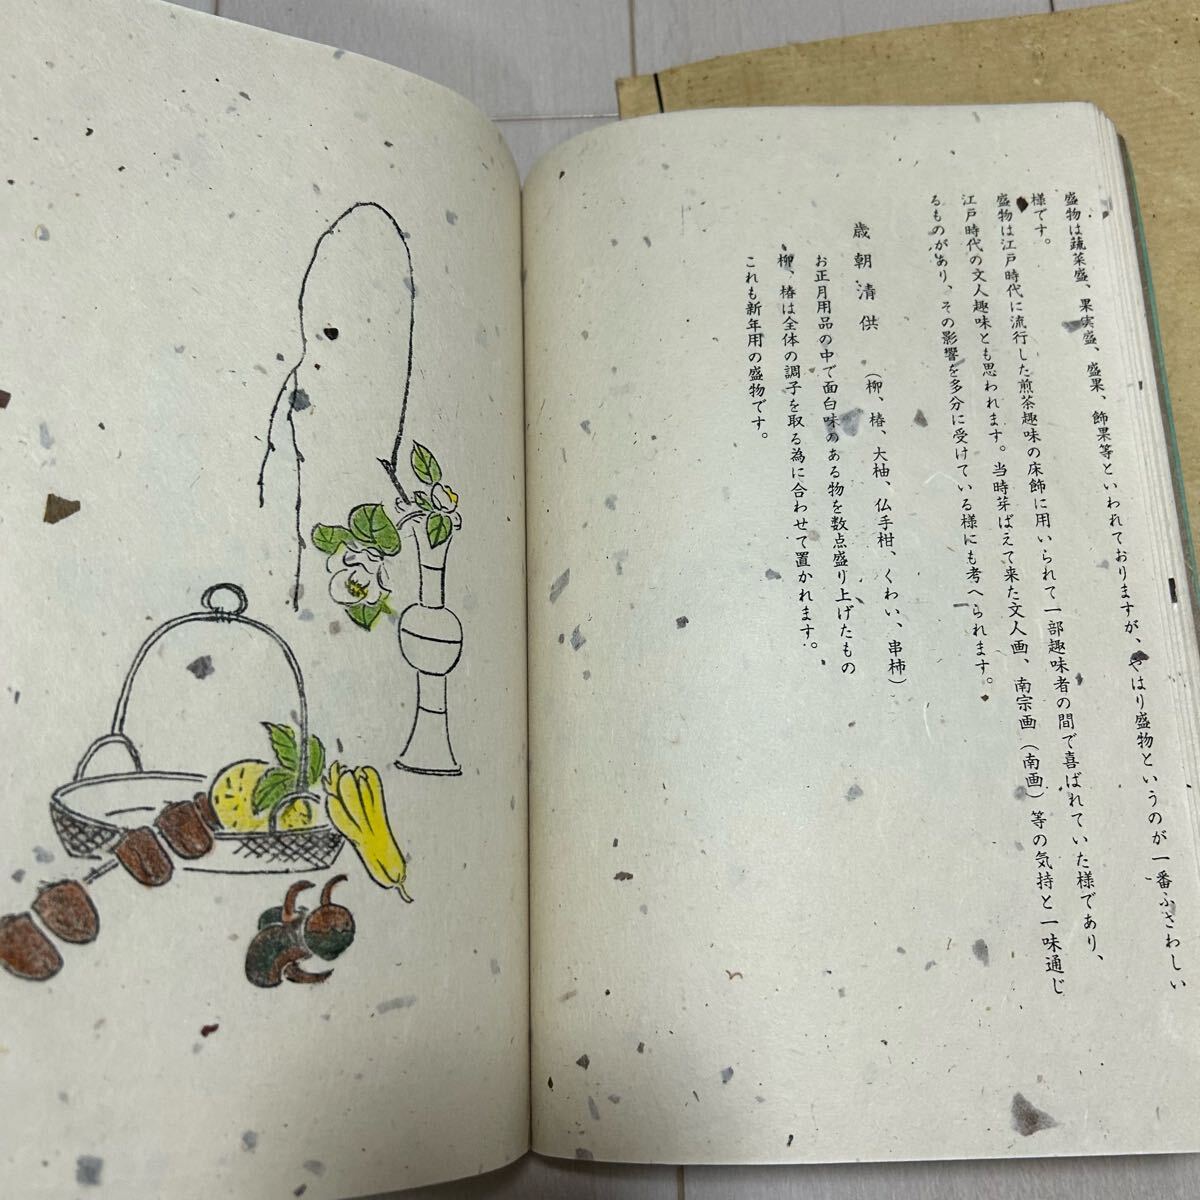 盛物は蔬菜盛、果実盛、盛果、飾果等といわれておりますが、やはり盛物というのが一番ふさわしい
様です。
盛物は江戸時代に流行した煎茶趣味の床飾に用いられて一部趣味者の間で喜ばれていた様であり、
江戸時代の文人趣味とも思われます。当時芽ばえて来た文人画、南宗画（南画）等の気持と一味通じ
るものがあり、その影響を多分に受けている様にも考へられます。
歳朝清供　（柳、椿、大柚、仏手柑、くわい、串柿）
お正月用品の中で面白味のある物を数点盛り上げたもの
柳、椿は全体の調子を取る為に合わせて置かれます。
これも新年用の盛物です。